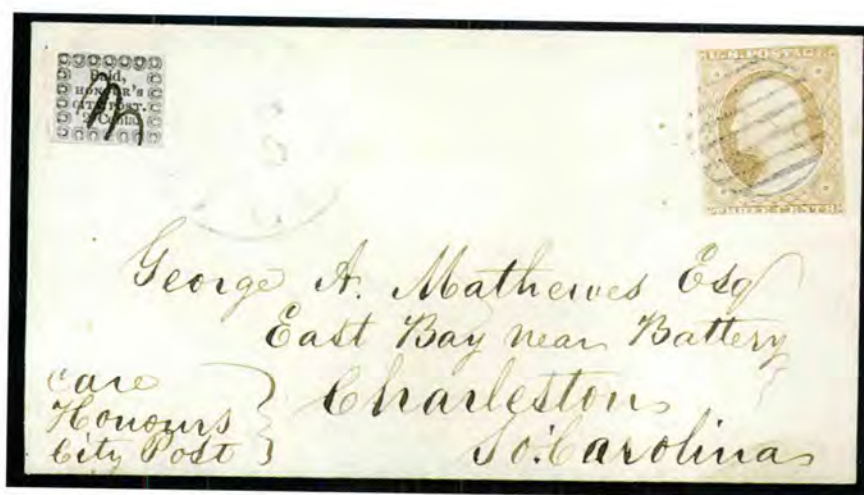 Paid,
HONOUR'S
CITY POST.
2 Cents.
U.S. POSTAGE
THREE CENTS
George A. Mathewes Esq
East Bay near Battery
Charleston
So: Carolina
care
Honours
City Post